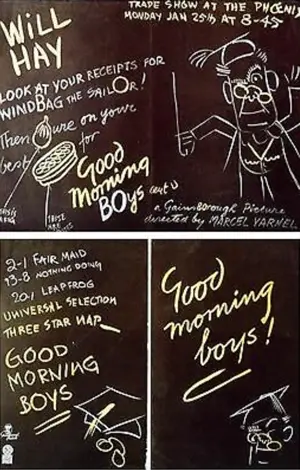 WiLL
HAY
TRADE SHOW AT THE PHOENIX
MONDAY JAN 25th AT 8-45
LOOK AT YOUR RECEIPTS FOR
WINDBAG THE SAILOR!
Then
ure on your
best
for
Good
Morning
BOys
cert U
THIS IS A
FIG
THESE
ARE
a Gainsborough Picture
directed by MARCEL VARNEL
2-1 FAIR MAID
13-8 NOTHING DOING
20-1 LEAPFROG
UNIVERSAL SELECTION
THREE STAR NAP
GOOD
MORNING
BOYS
Good
morning
boys!